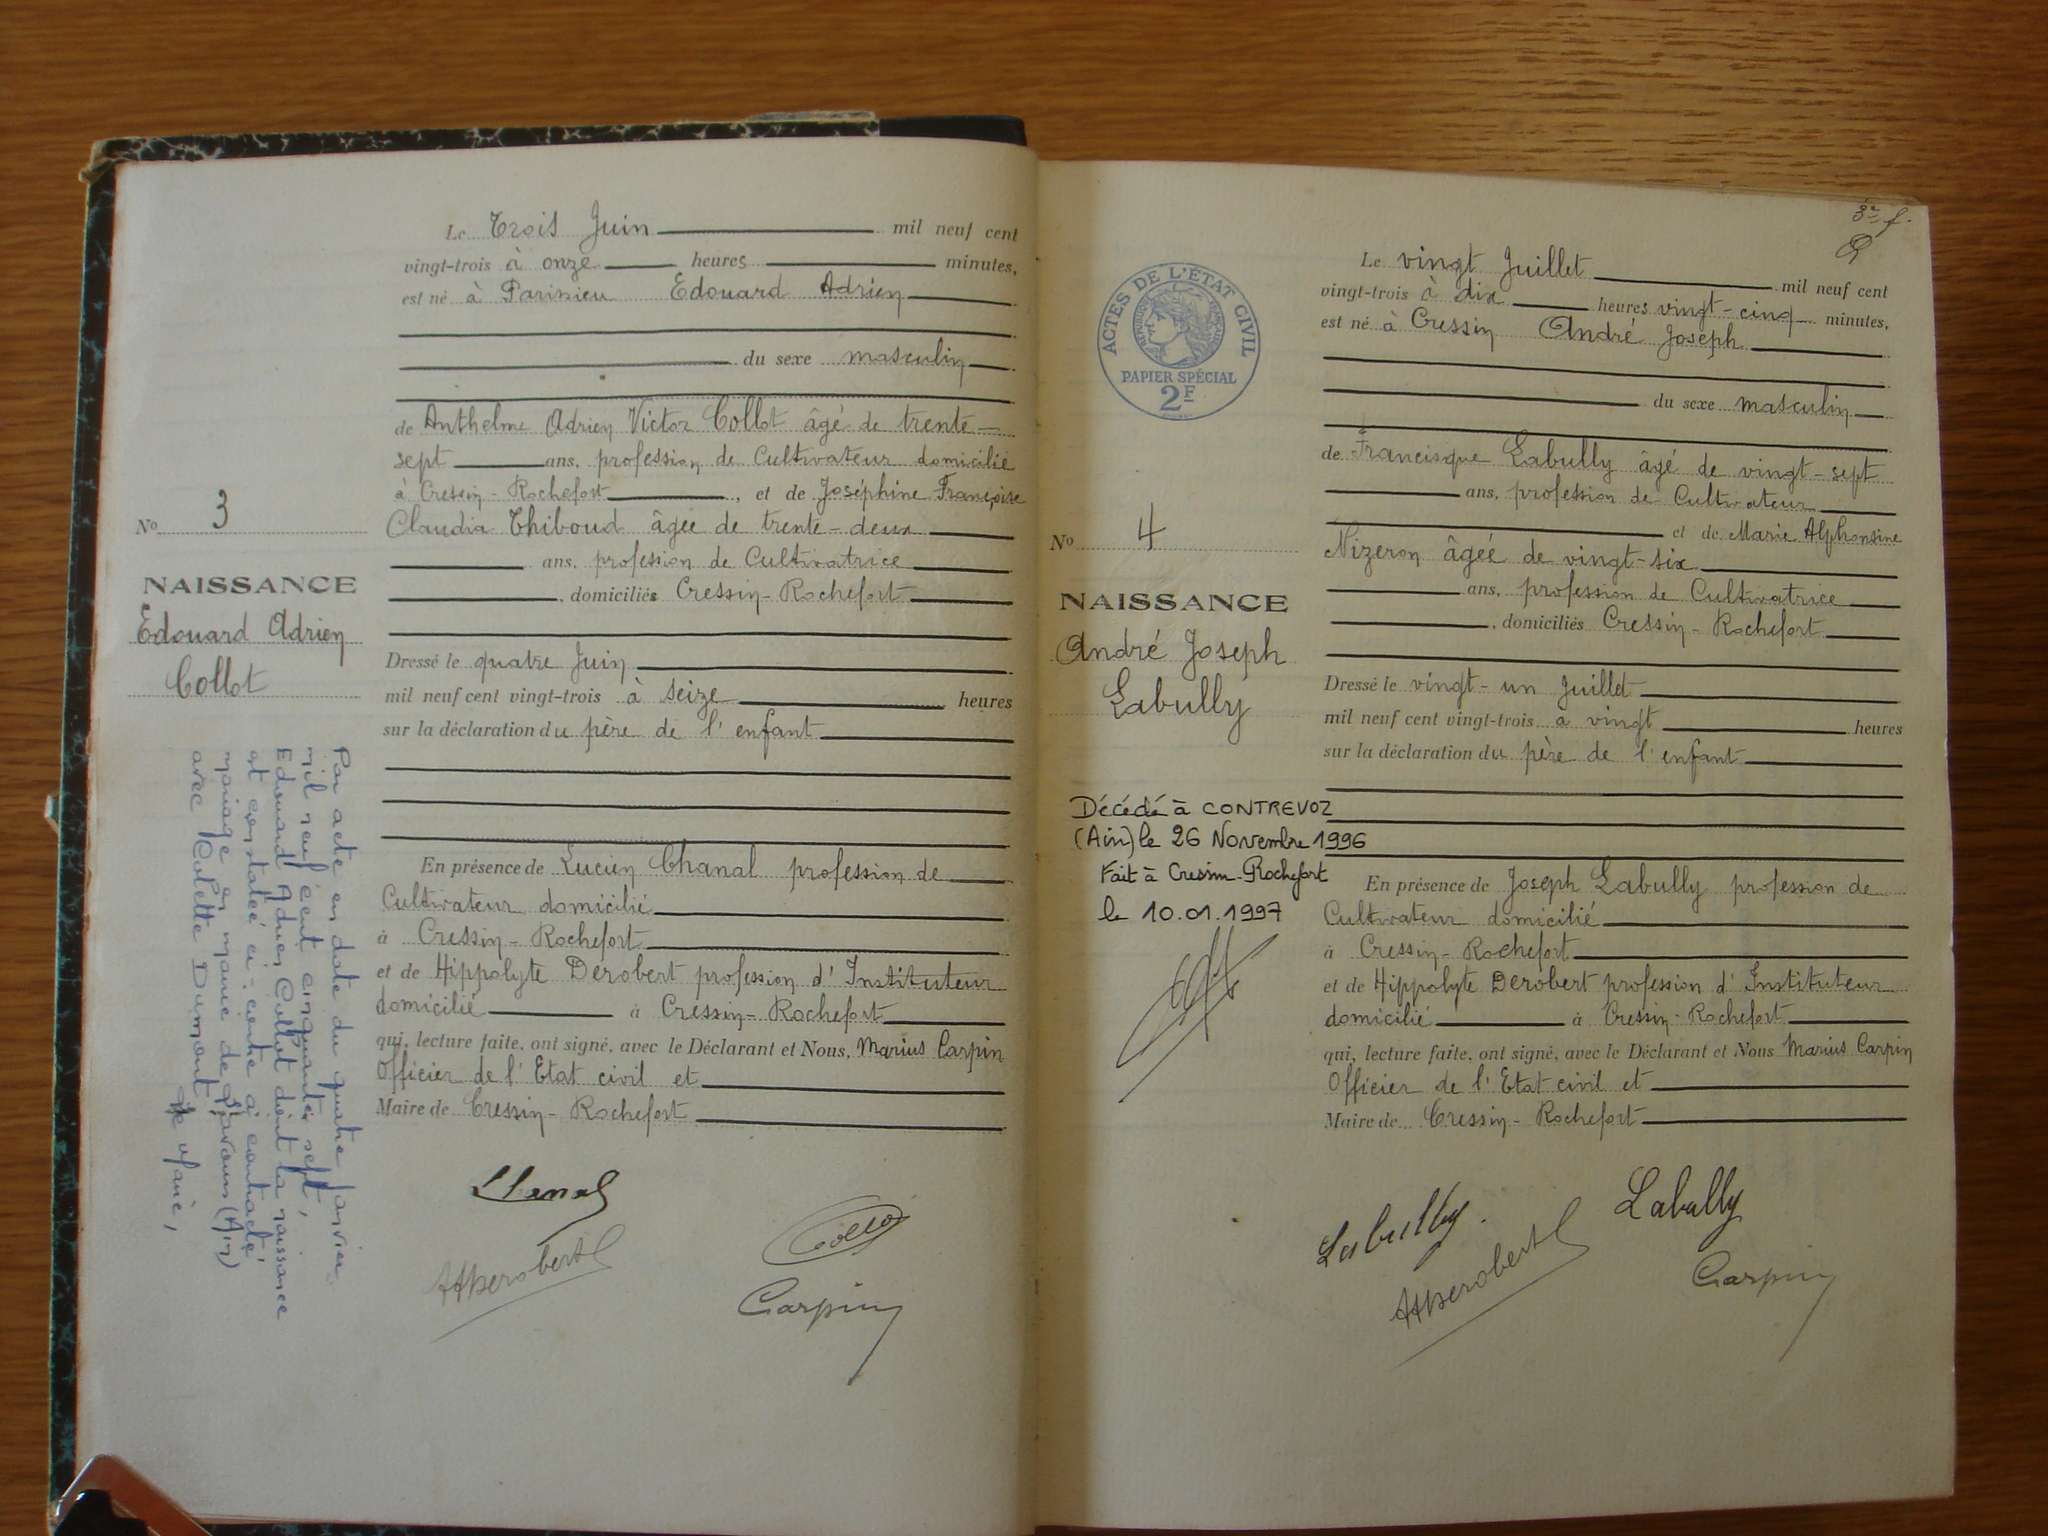 Le Trois Juin mil neuf cent
vingt-trois à onze heures minutes,
est né à Parissieu Edouard Adrien
du sexe masculin
de Anthelme Adrien Victor Collot âgé de trente-
sept ans, profession de Cultivateur domicilié
à Cressin-Rochefort, et de Joséphine Françoise
Claudia Thiboud âgée de trente-deux
ans, profession de Cultivatrice
, domiciliés Cressin-Rochefort
Dressé le quatre Juin
mil neuf cent vingt-trois à seize heures
sur la déclaration du père de l'enfant
En présence de Lucien Chanal profession de
Cultivateur domicilié
à Cressin-Rochefort
et de Hippolyte Derobert profession d'Instituteur
domicilié à Cressin-Rochefort
qui, lecture faite, ont signé, avec le Déclarant et Nous, Marius Carpin
Officier de l'Etat civil et
Maire de Cressin-Rochefort
Chanal
Collot
HDerobert
Carpin
No 3
NAISSANCE
Edouard Adrien
Collot
Par acte en date du quatre janvier
mil neuf cent cinquante sept,
Edouard Adrien Collot dont la naissance
est constatée ci-contre a contracté
mariage en mairie de (Ain)
avec Colette Dumont
Le Maire,
3e f.
ACTES DE L'ÉTAT CIVIL
RÉPUBLIQUE FRANÇAISE
PAPIER SPÉCIAL
2F
No 4
NAISSANCE
André Joseph
Labully
Décédé à CONTREVOZ
(Ain) le 26 Novembre 1996
Fait à Cressin-Rochefort
le 10.01.1997
Le vingt Juillet mil neuf cent
vingt-trois à dix heures vingt-cinq minutes,
est né à Cressin André Joseph
du sexe masculin
de Francisque Labully âgé de vingt-sept
ans, profession de Cultivateur
et de Marie Alphonsine
Nizeron âgée de vingt-six
ans, profession de Cultivatrice
, domiciliés Cressin-Rochefort
Dressé le vingt-un Juillet
mil neuf cent vingt-trois à vingt heures
sur la déclaration du père de l'enfant
En présence de Joseph Labully profession de
Cultivateur domicilié
à Cressin-Rochefort
et de Hippolyte Derobert profession d'Instituteur
domicilié à Cressin-Rochefort
qui, lecture faite, ont signé, avec le Déclarant et Nous Marius Carpin
Officier de l'Etat civil et
Maire de Cressin-Rochefort
Labully
Labully
HDerobert
Carpin